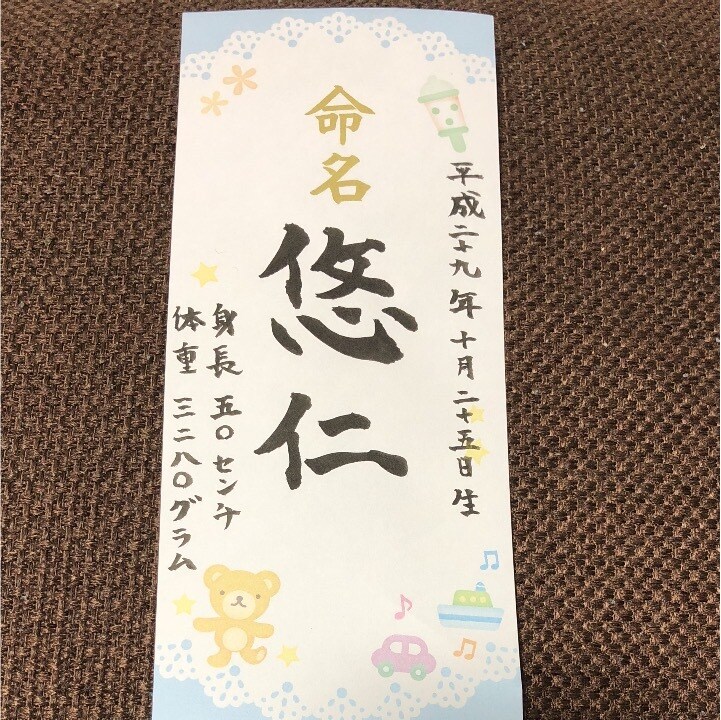 命名
平成二十九年十月二十五日生
悠仁
身長五〇センチ
体重三二八〇グラム